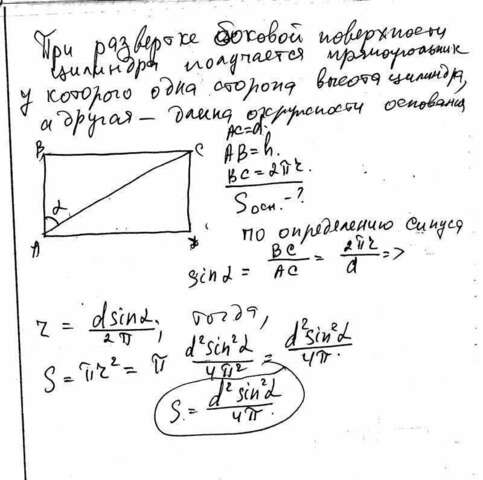 При развертке боковой поверхности
цилиндра получается прямоугольник
у которого одна сторона высота цилиндра,
а другая — длина окружности основания
AC = d.
B C AB = h.
BC = 2πr.
α Sосн. - ?
A D
по определению синуса
sinα = BC/AC = 2πr/d =>
r = dsinα/2π; тогда,
S = πr² = π d²sin²α/4π² = d²sin²α/4π.
S = d²sin²α/4π.